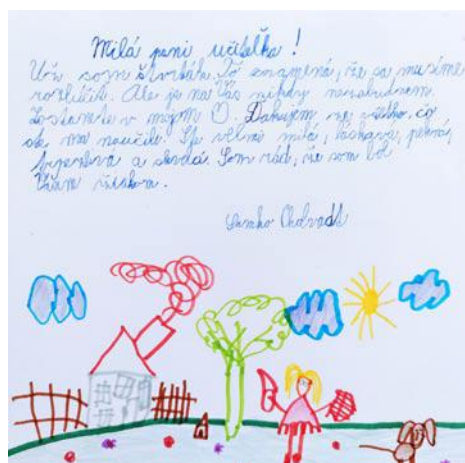 Milá pani učiteľka!
Už som štvrták. To znamená, že sa musíme
rozlúčiť. Ale ja na Vás nikdy nezabudnem.
Zostanete v mojom O. Ďakujem za všetko, čo
ste ma naučili. Ste veľmi milá, láskavá, pekná,
trpezlivá a skvelá. Som rád, že som bol
Vašim žiakom.
Samko